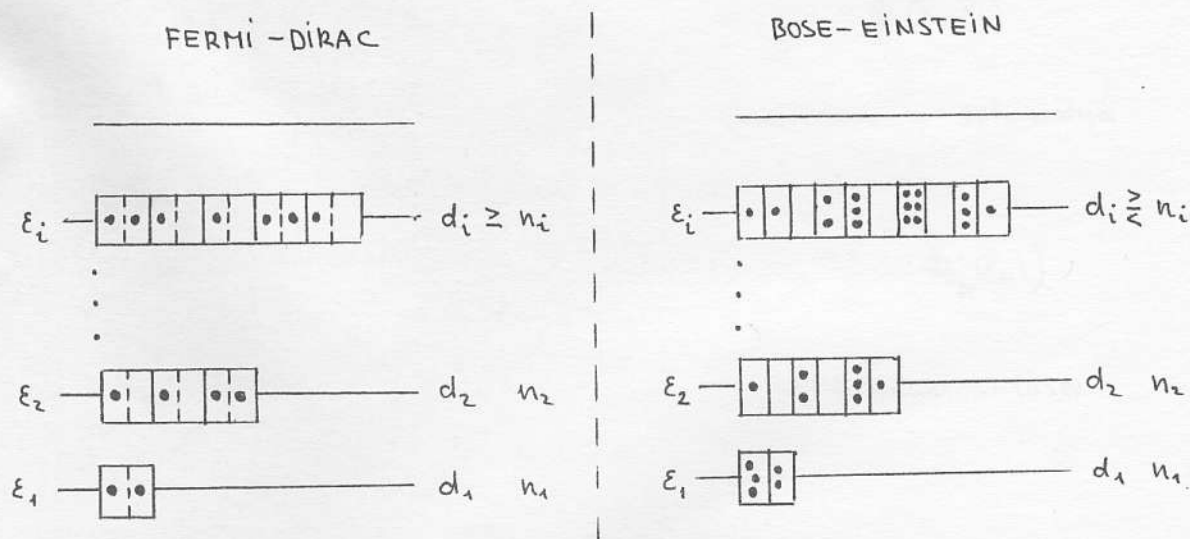 FERMI - DIRAC
εᵢ dᵢ ≥ nᵢ
ε₂ d₂ n₂
ε₁ d₁ n₁
BOSE - EINSTEIN
εᵢ dᵢ ≷ nᵢ
ε₂ d₂ n₂
ε₁ d₁ n₁